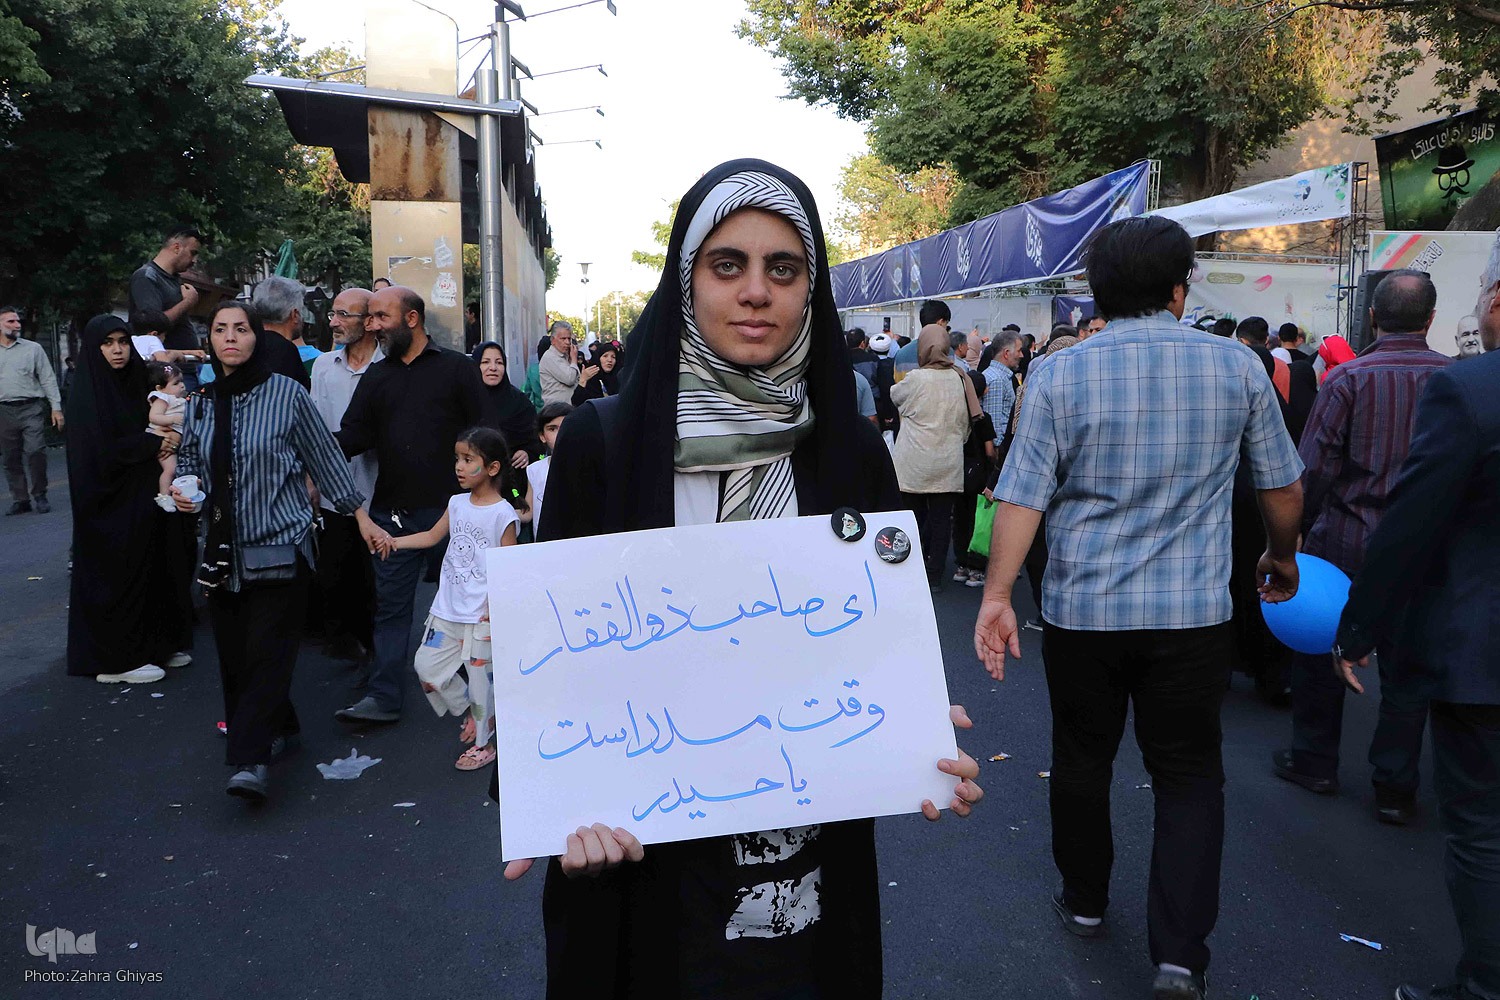 ای صاحب ذوالفقار
وقت مدد است
یا حیدر
Iqna
Photo:Zahra Ghiyas